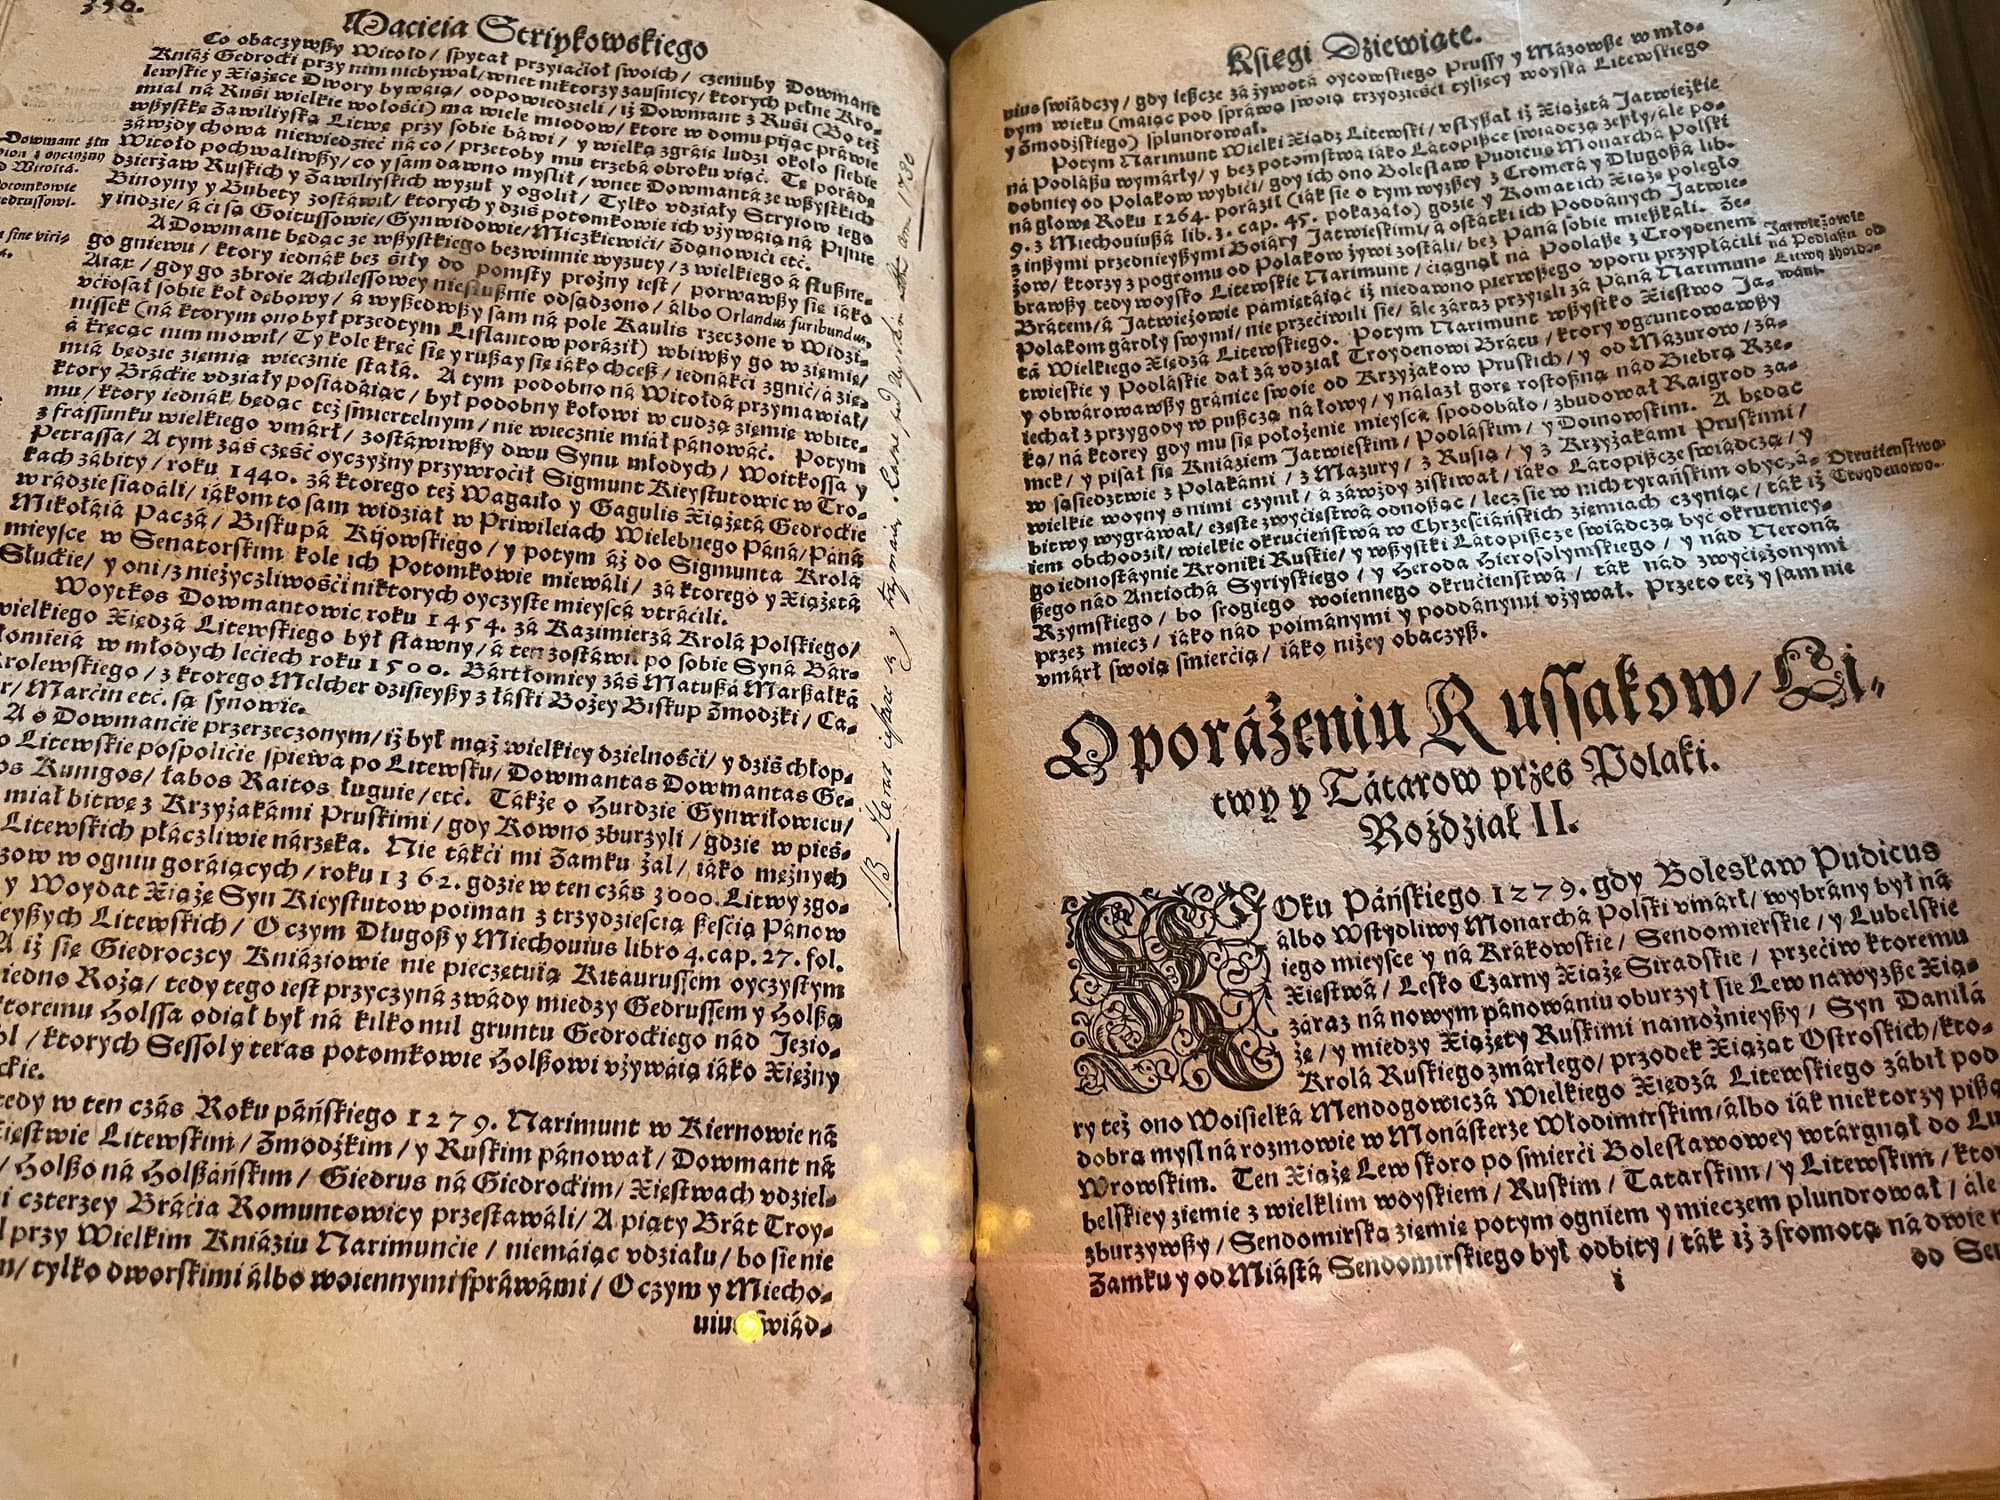 350.
Macieia Striykowskiego
Co obaczywßy Witołd / spytał przyiaćioł swoich / czemuby Dowmánt
Kniáź Gedrocki przy nim niebywał / wnet niktorzy zausnicy / ktorych pełne Kro-
lewskie y Xiążęce Dwory bywáią / odpowiedzieli / iż Dowmánt z Ruśi (Bo też
miał ná Ruśi wielkie wołośći) ma wiele miodow / ktore w domu piiąc práwie
wßystkę Záwiliyską Litwę przy sobie báwi / y wielką zgráię ludzi około siebie
záwżdy chowa niewiedzieć ná co / przetoby mu trzebá obroku viąć. Tę porádę
Witołd pochwaliwßy / co y sam dawno myslił / wnet Dowmántá ze wßystkich
dzierżaw Ruskich y Záwiliyskich wyzuł y ogolił / Tylko vdziały Stryiow iego
Binoyny y Bubety zostáwił / ktorych y dziś potomkowie ich vżywáią ná Pisnie
y indzie / á ći są Goitussowie / Gynwidowie / Miczkiewići / Zdanowići etć.
A Dowmánt będąc ze wßystkiego bezwinnie wyzuty / z wielkiego á słußne-
go gniewu / ktory iednák bez śiły do pomsty prożny iest / porwawßy się iáko
Aiax / gdy go zbroie Achillessowey niesłußnie odsądzono / álbo Orlandus furibundus,
vćiosał sobie koł dębowy / á wyßedwßy sam ná pole Kaulis rzeczone v Widzi-
nissek (ná ktorym ono był przedtym Liflantow poráził) wbiwßy go w ziemię /
á kręcąc nim mowił / Ty kole kręć się y rußay się iáko chceß / iednákći zgnić / á zie-
miá będzie ziemią wiecznie stałą. A tym podobno ná Witołdá przymawiał /
ktory Bráckie vdziały posiadáiąc / był podobny kołowi w cudzą ziemię wbite-
mu / ktory iednák będąc też śmiertelnym / nie wiecznie miał pánowáć. Potym
z frassunku wielkiego vmárł / zostáwiwßy dwu Synu młodych / Woitkossa y
Petrassa / A tym zás część oyczyzny przywroćił Sigmunt Kieystutowic w Tro-
kach zábity / roku 1440. zá ktorego też Wagáiło y Gagulis Xiążętá Gedrockie
w rádzie siadáli / iákom to sam widział w Priwileiach Wielebnego Páná / Páná
Mikołáiá Paczá / Biskupá Kijowskiego / y potym áż do Sigmuntá Krolá
mieysce w Senatorskim kole ich Potomkowie miewáli / zá ktorego y Xiążętá
Słuckie / y oni / z nieżyczliwośći niktorych oyczyste mieyscá vtráćili.
Woytkos Dowmantowic roku 1454. zá Kazimierzá Krolá Polskiego /
wielkiego Xiędzá Litewskiego był sławny / á ten zostáwił po sobie Syná Bár-
łomieiá w młodych lećiech roku 1500. Bártłomiey zás Matußá Marßałká
Krolewskiego / z ktorego Melcher dzisieyßy z łáski Bożey Biskup Zmodzki / Ca-
r / Marćin etć. są synowie.
A o Dowmánćie przerzeczonym / iż był mąż wielkiey dzielnośći / y dziś chłop-
o Litewskie pospolićie śpiewa po Litewsku / Dowmantas Dowmantas Ge-
os Kunigos / łabos Raitos ługuie / etć. Tákże o Hurdzie Gynwiłowicu /
miał bitwę z Krzyżakámi Pruskimi / gdy Kowno zburzyli / gdzie w pieś-
Litewskich płáczliwie nárzeka. Nie tákći mi Zamku żal / iáko mężnych
zow w ogniu goráiących / roku 1362. gdzie w ten czás 3000. Litwy zgo-
y Woydat Xiążę Syn Kieystutow poiman z trzydzieśćią ßeśćią Pánow
eyßych Litewskich / O czym Długoß y Miechouius libro 4. cap. 27. fol.
A iż się Giedroczcy Kniáźiowie nie pieczętuią Kitaurussem oyczystym
iedno Rożą / tedy tego iest przyczyná zwády miedzy Gedrussem y Holßą
ktoremu Holssa odiął był ná kilko mil gruntu Gedrockiego nád Jezio-
ol / ktorych Sessol y teras potomkowie Holßowi vżywáią iáko Xiężny
ckie.
tedy w ten czás Roku páńskiego 1279. Narimunt w Kiernowie ná
ięstwie Litewskim / Zmodzkim / y Ruskim pánował / Dowmánt ná
/ Holßo ná Holßáńskim / Giedrus ná Giedrockim / Xięstwach vdziel-
i czterzey Bráćia Romuntowicy przestawáli / A piąty Brát Troy-
ł przy Wielkim Kniáźiu Narimunćie / niemáiąc vdziału / bo się nie
/ tylko dworskimi álbo woiennymi spráwámi / O czym y Miecho-
uius świád-
Dowmánt
z oyczyzny
Witołtá.
Potomkowie
Gedrussowi.
sine viri-
NB
1730
Kśięgi Dziewiąte.
uius świádczy / gdy ießcze zá żywotá oycowskiego Prussy y Mázowße w mło-
dym wieku (máiąc pod spráwą swoią trzydzieśći tyśięcy woyská Litewskiego
y Zmodzkiego) splundrował.
Potym Narimunt Wielki Xiądz Litewski / vsłyßał iż Xiążętá Jatwieżkie
ná Podláßu wymárły / y bez potomstwá iáko Látopißce świádczą zeßły / ále po-
dobniey od Polakow wybići / gdy ich ono Bolesław Pudicus Monarchá Polski
ná głowę Roku 1264. poráził (iák się o tym wyzßey z Cromerá y Długoßá lib.
9. z Miechouiußá lib. 3. cap. 45. pokazáło) gdzie y Komat ich Xiążę poległo
z inßymi przednieyßymi Boiáry Jatwieskimi / á ostátki ich Poddánych Jatwie-
żow / ktorzy z pogromu od Polakow żywi zostáli / bez Páná sobie mießkáli. Ze-
brawßy tedy woysko Litewskie Narimunt / ćiągnął ná Podláße z Troydenem
Brátem / á Jatwieżowie pámiętáiąc iż niedawno pierwßego vporu przypłáćili
Polakom gárdły swymi / nie przećiwili się / ále záraz przyięli zá Páná Narimun-
tá Wielkiego Xiędzá Litewskiego. Potym Narimunt wßystko Xięstwo Ja-
twieskie y Podláskie dał zá vdział Troydenowi Brátu / ktory vgruntowawßy
y obwárowawßy gránice swoie od Krzyżakow Pruskich / y od Mázurow / zá-
iechał z przygody w pußczą ná łowy / y nálazł gorę rostoßną nád Biebrą Rze-
ką / ná ktorey gdy mu się położenie mieyscá spodobáło / zbudował Raigrod za-
mek / y pisał się Kniáźiem Jatwieskim / Podláskim / y Doinowskim. A będąc
w sąśiedztwie z Polakámi / z Mázury / z Rusią / y z Krzyżakámi Pruskimi /
wielkie woyny s nimi czynił / á záwżdy ziskiwał / iáko Látopißcze świádczą / y
bitwy wygrawał / częste zwyćięstwá odnoßąc / lecz się w nich tyráńskim obyczá-
iem obchodził / wielkie okrućieństwá w Chrześćiáńskich ziemiach czyniąc / ták iż
go iednostáynie Kroniki Ruskie / y wßystki Látopißcze świádczą być okrutniey-
ßego nád Antiochá Syriyskiego / y Herodá Hierosolymskiego / y nád Neroná
Rzymskiego / bo srogiego woiennego okrućieństwá / ták nád zwyćiężonymi
przez miecz / iáko nád poimánymi y poddánymi vżywał. Przeto też y sam nie
vmárł swoią śmierćią / iáko niżey obaczyß.
Jatwieżowie
ná Podlaßu od
Litwy zhołdo-
wáni.
Okrućieństwo
Troydenowo.
O poráżeniu Russakow / Li-
twy y Tátarow przes Polaki.
Rozdział II.
ROku Páńskiego 1279. gdy Bolesław Pudicus
álbo Wstydliwy Monarchá Polski vmárł / wybrány był ná
iego mieysce y ná Krákowskie / Sendomierskie / y Lubelskie
Xięstwá / Lesko Czarny Xiążę Siradskie / przećiw ktoremu
záraz ná nowym pánowániu oburzył się Lew nawyzße Xią-
żę / y miedzy Xiążęty Ruskimi namożnieyßy / Syn Danilá
Krolá Ruskiego zmárłego / przodek Xiążąt Ostroskich / kto-
ry też ono Woisielká Mendogowiczá Wielkiego Xiędzá Litewskiego zábił pod
dobrą mysl ná rozmowie w Monásterze Włodimirskim / álbo iák niektorzy pißą
Wrowskim. Ten Xiążę Lew skoro po śmierći Bolesławowey wtárgnął do Lu-
belskiey ziemie z wielklim woyskiem / Ruskim / Tatarskim / y Litewskim / ktor
zburzywßy / Sendomirską ziemię potym ogniem y mieczem plundrował / ále
Zamku y od Miástá Sendomirskiego był odbity / ták iż z sromotą ná dwie
i
od Sen